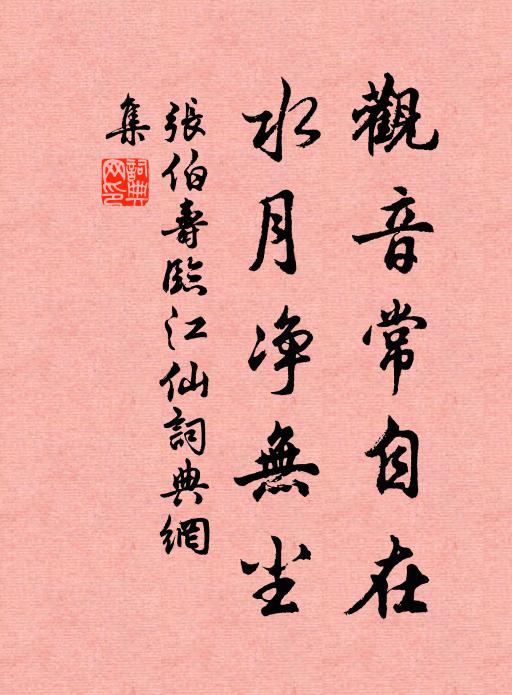 觀音常自在
水月净無尘
張伯壽臨江仙詞典網
集
詞典網印